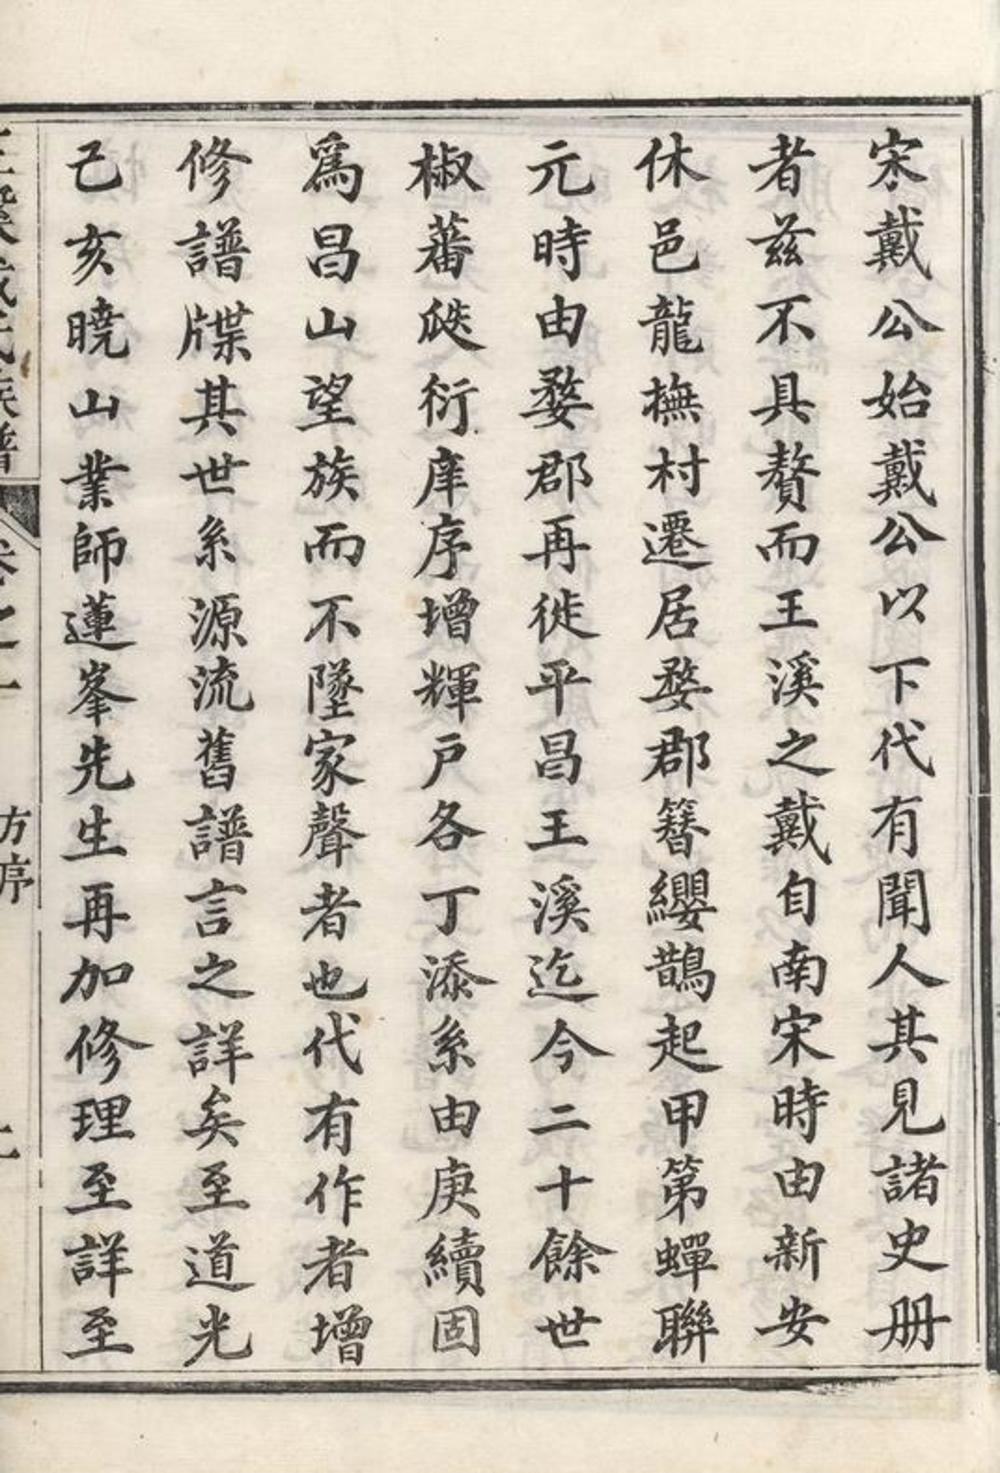 宋戴公始戴公以下代有聞人其見諸史册
者兹不具贅而王溪之戴自南宋時由新安
休邑龍撫村遷居婺郡簪纓鵲起甲第蟬聯
元時由婺郡再徙平昌王溪迄今二十餘世
椒蕃瓞衍庠序增輝戸各丁添系由庚續固
爲昌山望族而不墜家聲者也代有作者增
修譜牒其世系源流舊譜言之詳矣至道光
己亥曉山業師蓮峯先生再加修理至詳至
王溪戴氏族譜 卷之一 方序